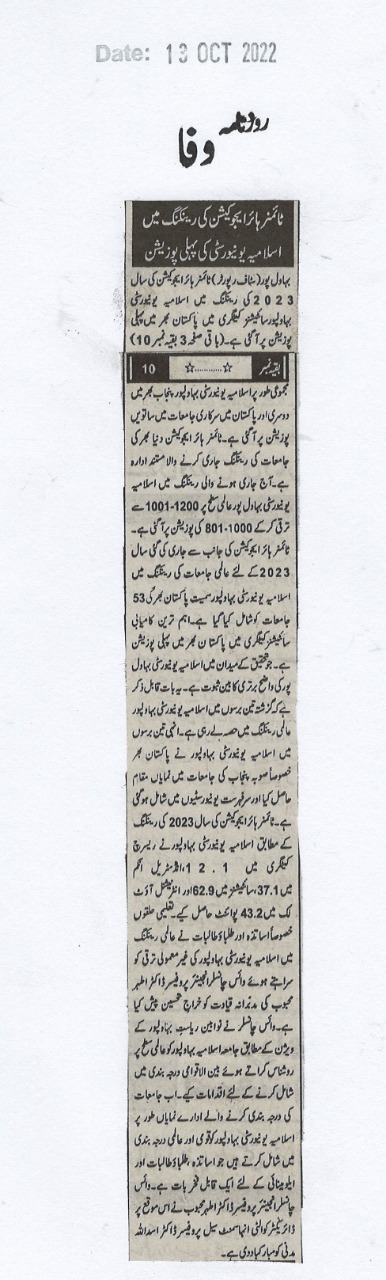 Date: 13 OCT 2022
روزنامہ
وفا
ٹائمز ہائر ایجوکیشن کی رینکنگ میں
اسلامیہ یونیورسٹی کی پہلی پوزیشن
بہاول پور (سٹاف رپورٹر) ٹائمز ہائر ایجوکیشن کی سال
2023 کی رینکنگ میں اسلامیہ یونیورسٹی
بہاولپور سائٹیشنز کیٹگری میں پاکستان بھر میں پہلی
پوزیشن پر آگئی ہے۔ (باقی صفحہ 3 بقیہ نمبر 10)
بقیہ نمبر ☆............☆ 10
مجموعی طور پر اسلامیہ یونیورسٹی بہاولپور پنجاب بھر میں
دوسری اور پاکستان میں سرکاری جامعات میں ساتویں
پوزیشن پر آگئی ہے۔ ٹائمز ہائر ایجوکیشن دنیا بھر کی
جامعات کی رینکنگ جاری کرنے والا مستند ادارہ
ہے۔ آج جاری ہونے والی رینکنگ میں اسلامیہ
یونیورسٹی بہاول پور عالمی سطح پر 1200-1001 سے
ترقی کر کے 1000-801 کی پوزیشن پر آگئی ہے۔
ٹائمز ہائر ایجوکیشن کی جانب سے جاری کی گئی سال
2023 کے لئے عالمی جامعات کی رینکنگ میں
اسلامیہ یونیورسٹی بہاولپور سمیت پاکستان بھر کی 53
جامعات کو شامل کیا گیا ہے۔ اہم ترین کامیابی
سائٹیشنز کیٹگری میں پاکستان بھر میں پہلی پوزیشن
ہے۔ جو تحقیق کے میدان میں اسلامیہ یونیورسٹی بہاول
پور کی واضح برتری کا بین ثبوت ہے۔ یہ بات قابل ذکر
ہے کہ گزشتہ تین برسوں میں اسلامیہ یونیورسٹی بہاولپور
عالمی رینکنگ میں حصہ لے رہی ہے۔ انہی تین برسوں
میں اسلامیہ یونیورسٹی بہاولپور نے پاکستان بھر
خصوصاً صوبہ پنجاب کی جامعات میں نمایاں مقام
حاصل کیا اور سرفہرست یونیورسٹیوں میں شامل ہوگئی
ہے۔ ٹائمز ہائر ایجوکیشن کی سال 2023 کی رینکنگ
کے مطابق اسلامیہ یونیورسٹی بہاولپور نے ریسرچ
کیٹگری میں 12.1، انڈسٹریل انکم
میں 37.1، سائٹیشنز میں 62.9 اور انٹرنیشنل آؤٹ
لک میں 43.2 پوائنٹ حاصل کیے۔ تعلیمی حلقوں
خصوصاً اساتذہ اور طلباؤ طالبات نے عالمی رینکنگ
میں اسلامیہ یونیورسٹی بہاولپور کی غیر معمولی ترقی کو
سراہتے ہوئے وائس چانسلر انجینئر پروفیسر ڈاکٹر اطہر
محبوب کی مدبرانہ قیادت کو خراج تحسین پیش کیا
ہے۔ وائس چانسلر نے نوابین ریاست بہاولپور کے
ویژن کے مطابق جامعہ اسلامیہ بہاولپور کو عالمی سطح پر
روشناس کراتے ہوئے بین الاقوامی درجہ بندی میں
شامل کرنے کے لئے اقدامات کیے۔ اب جامعات
کی درجہ بندی کرنے والے ادارے نمایاں طور پر
اسلامیہ یونیورسٹی بہاولپور کو قومی اور عالمی درجہ بندی
میں شامل کرتے ہیں جو اساتذہ، طلباؤ طالبات اور
ایلومینائی کے لئے ایک قابل فخر بات ہے۔ وائس
چانسلر انجینئر پروفیسر ڈاکٹر اطہر محبوب نے اس موقع پر
ڈائریکٹر کوالٹی انہاسمنٹ سیل پروفیسر ڈاکٹر اسد اللہ
مدنی کو مبارکباد دی ہے۔